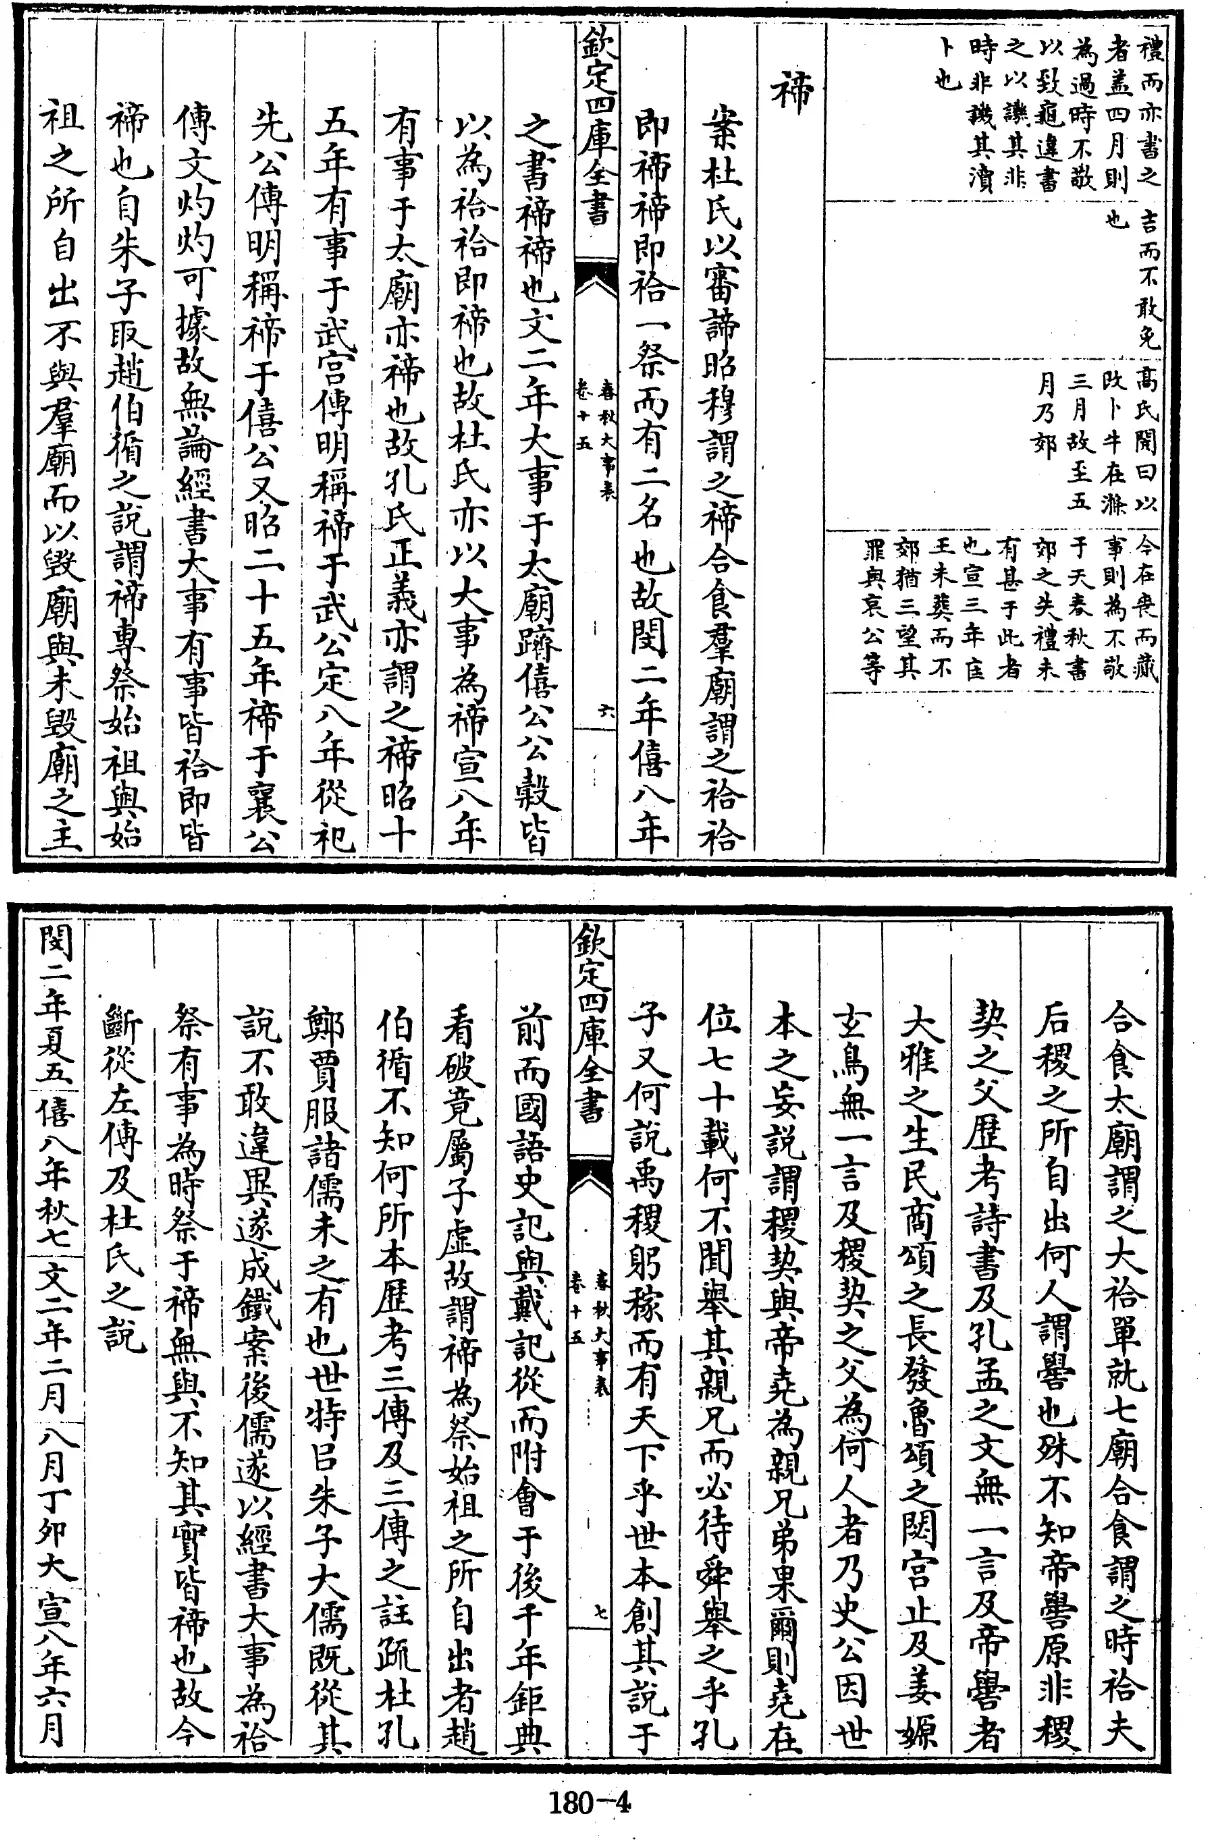 禮而亦書之
者蓋四月則
為過時不敬
以致龜違書
之以譏其非
時非譏其瀆
卜也
吉而不敢免
也
髙氏閌曰以
改卜牛在滌
三月故至五
月乃郊
今在喪而蔵
事則為不敬
于天春秋書
郊之失禮未
有甚于此者
也宣三年匡
王未葬而不
郊猶三望其
罪與哀公等
禘
案杜氏以審諦昭穆謂之禘合食羣廟謂之祫祫
即禘禘即祫一祭而有二名也故閔二年僖八年
欽定四庫全書
春秋大事表
卷十五
六
之書禘禘也文二年大事于太廟躋僖公公榖皆
以為祫祫即禘也故杜氏亦以大事為禘宣八年
有事于太廟亦禘也故孔氏正義亦謂之禘昭十
五年有事于武宫傳明稱禘于武公定八年從祀
先公傳明稱禘于僖公又昭二十五年禘于襄公
傳文灼灼可據故無論經書大事有事皆祫即皆
禘也自朱子取趙伯循之說謂禘專祭始祖與始
祖之所自出不與羣廟而以毀廟與未毀廟之主
合食太廟謂之大祫單就七廟合食謂之時祫夫
后稷之所自出何人謂嚳也殊不知帝嚳原非稷
契之父歷考詩書及孔孟之文無一言及帝嚳者
大雅之生民商頌之長發魯頌之閟宫止及姜嫄
玄鳥無一言及稷契之父為何人者乃史公因世
本之妄說謂稷契與帝堯為親兄弟果爾則堯在
位七十載何不聞舉其親兄而必待舜舉之乎孔
子又何說禹稷躬稼而有天下乎世本創其說于
欽定四庫全書
春秋大事表
卷十五
七
前而國語史記與戴記從而附會于後千年鉅典
看破竟屬子虛故謂禘為祭始祖之所自出者趙
伯循不知何所本歷考三傳及三傳之註疏杜孔
鄭賈服諸儒未之有也世特㠯朱子大儒既從其
說不敢違異遂成鐵案後儒遂以經書大事為祫
祭有事為時祭于禘無與不知其實皆禘也故今
斷從左傳及杜氏之說
閔二年夏五
僖八年秋七
文二年二月
八月丁卯大
宣八年六月
180-4